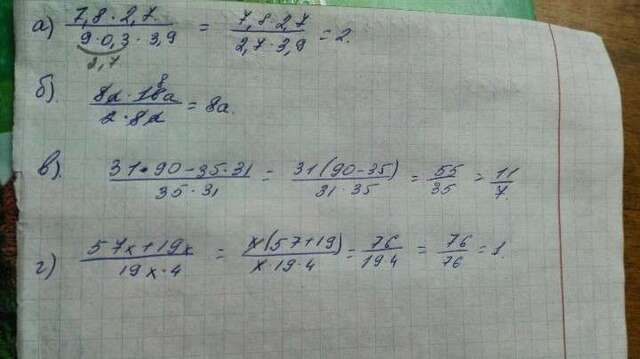 а) 7,8 · 2,7 / 9 · 0,3 · 3,9 = 7,8 · 2,7 / 2,7 · 3,9 = 2.
2,7
б). 8d · 16a / 2 · 8d = 8a.
8
в). 31 · 90 - 35 · 31 / 35 · 31 = 31(90-35) / 31 · 35 = 55/35 = 11/7.
г) 57x+19x / 19x · 4 = x(57+19) / x · 19 · 4 = 76 / 19 4 = 76/76 = 1.